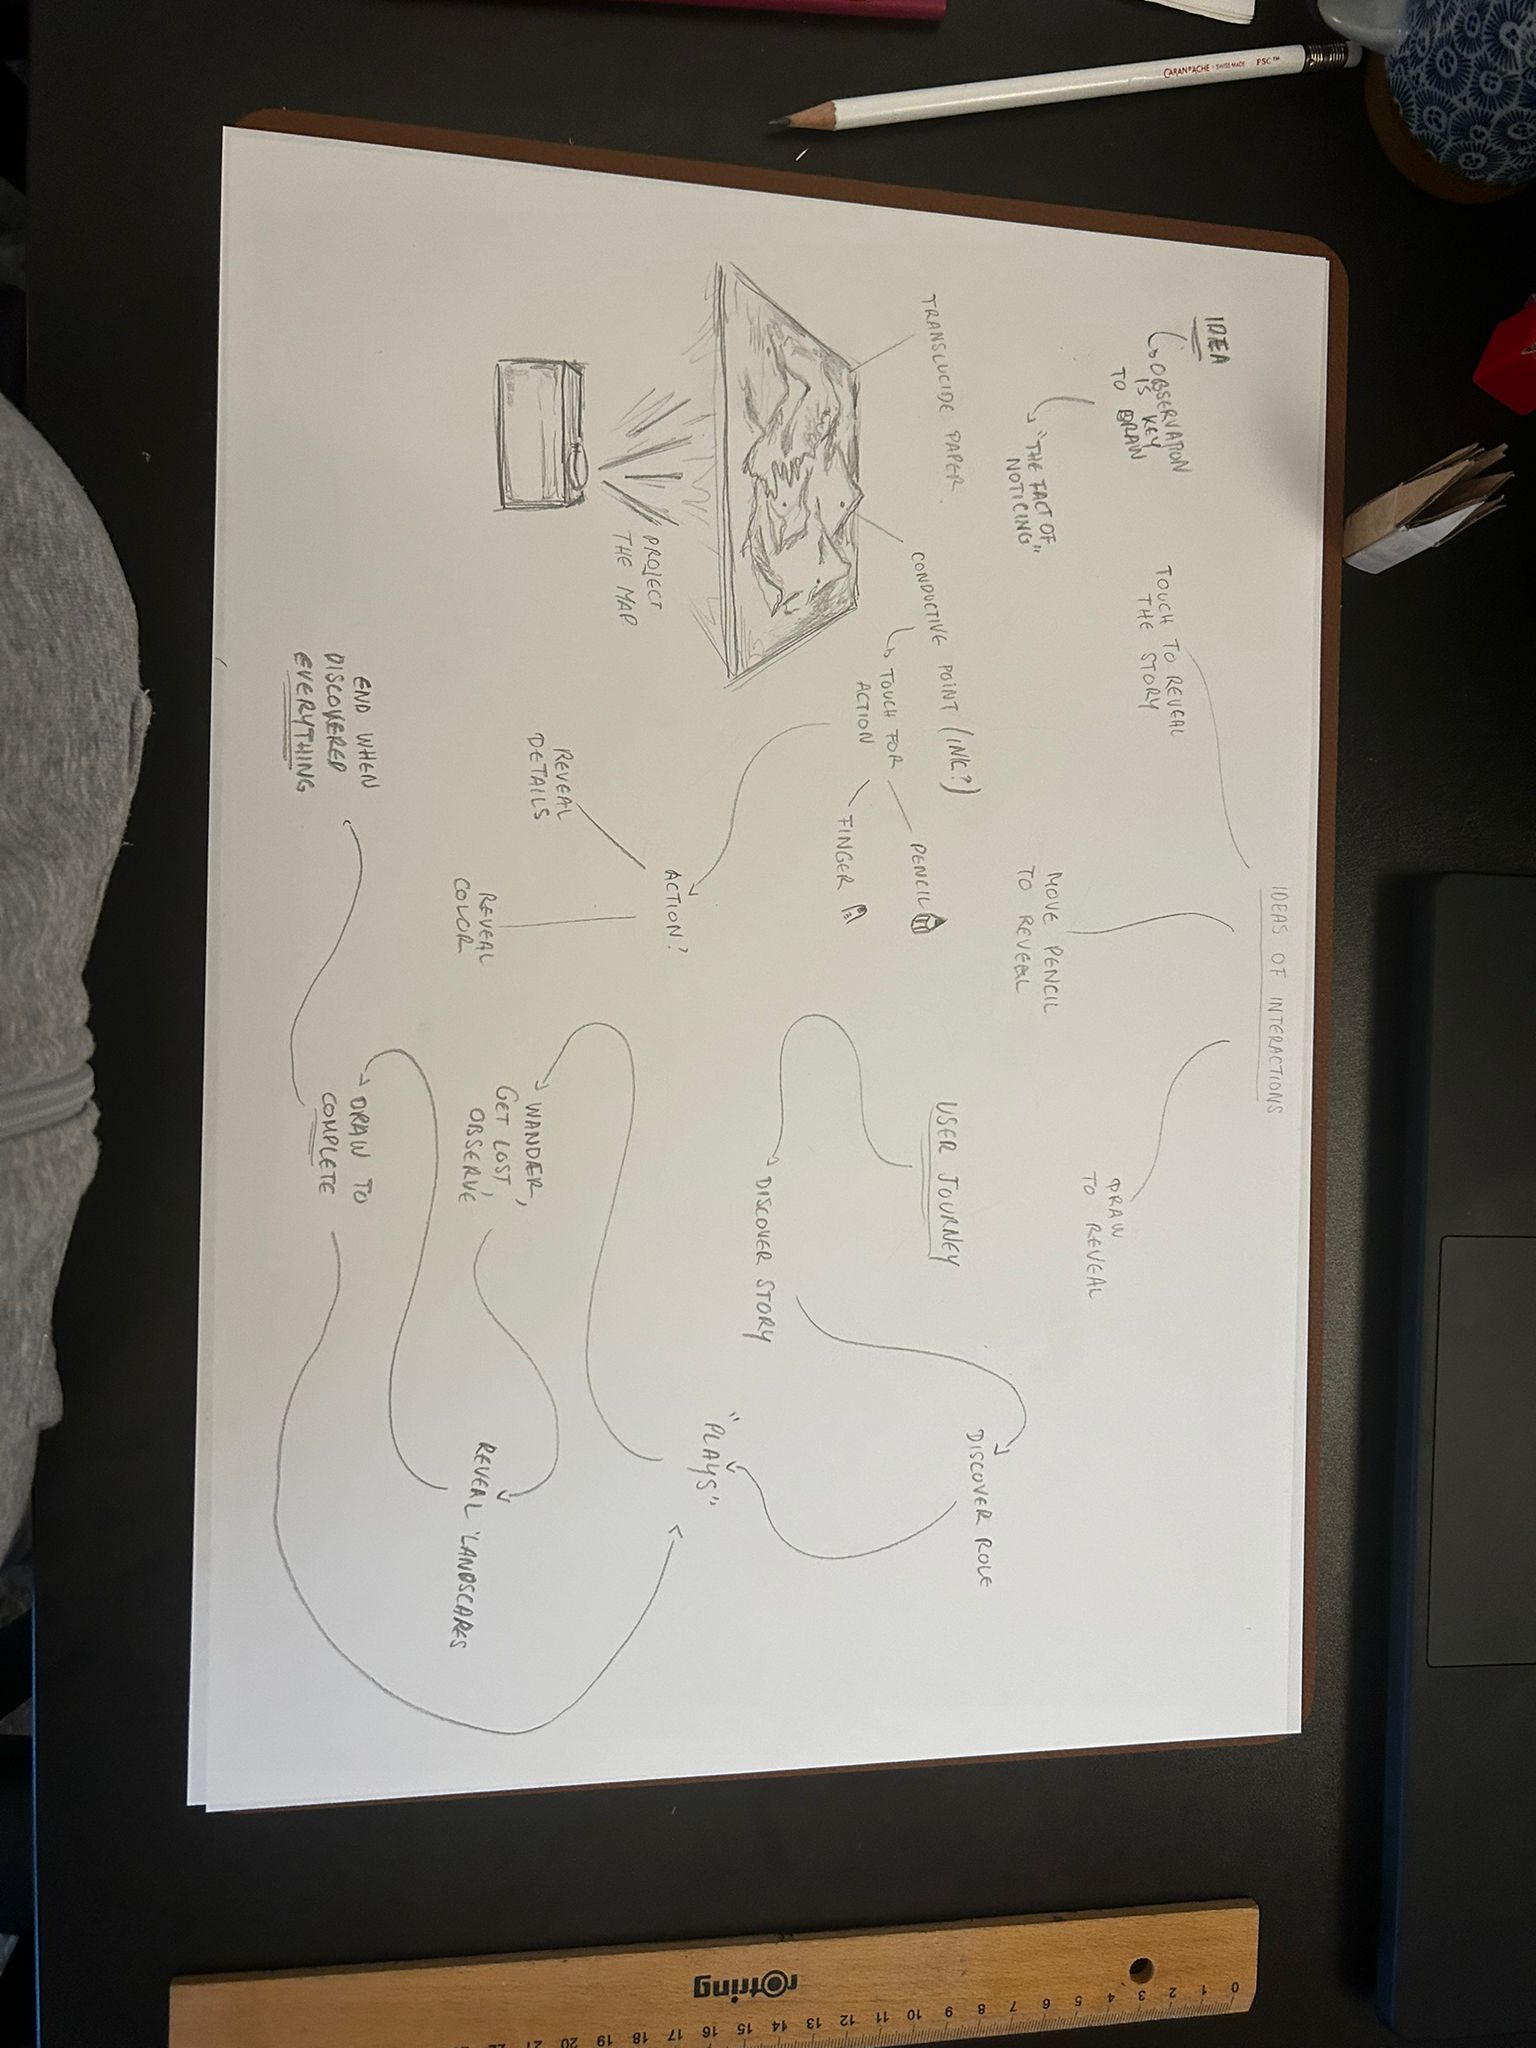 IDEAS OF INTERACTIONS
IDEA
OBSERVATION
IS KEY
TO DRAW
"THE FACT OF
NOTICING"
TOUCH TO REVEAL
THE STORY
MOVE PENCIL
TO REVEAL
DRAW
TO REVEAL
TRANSLUCIDE PAPER
CONDUCTIVE POINT (INK?)
TOUCH FOR
ACTION
PENCIL
FINGER
PROJECT
THE MAP
ACTION?
REVEAL
DETAILS
REVEAL
COLOR
USER JOURNEY
DISCOVER STORY
DISCOVER ROLE
"PLAYS"
WANDER,
GET LOST,
OBSERVE
REVEAL LANDSCAPES
DRAW TO
COMPLETE
END WHEN
DISCOVERED
EVERYTHING
CARAN D'ACHE SWISS MADE FSC™
rotring
0
1
2
3
4
5
6
7
8
9
10
11
12
13
14
15
16
17
18
19
20
21